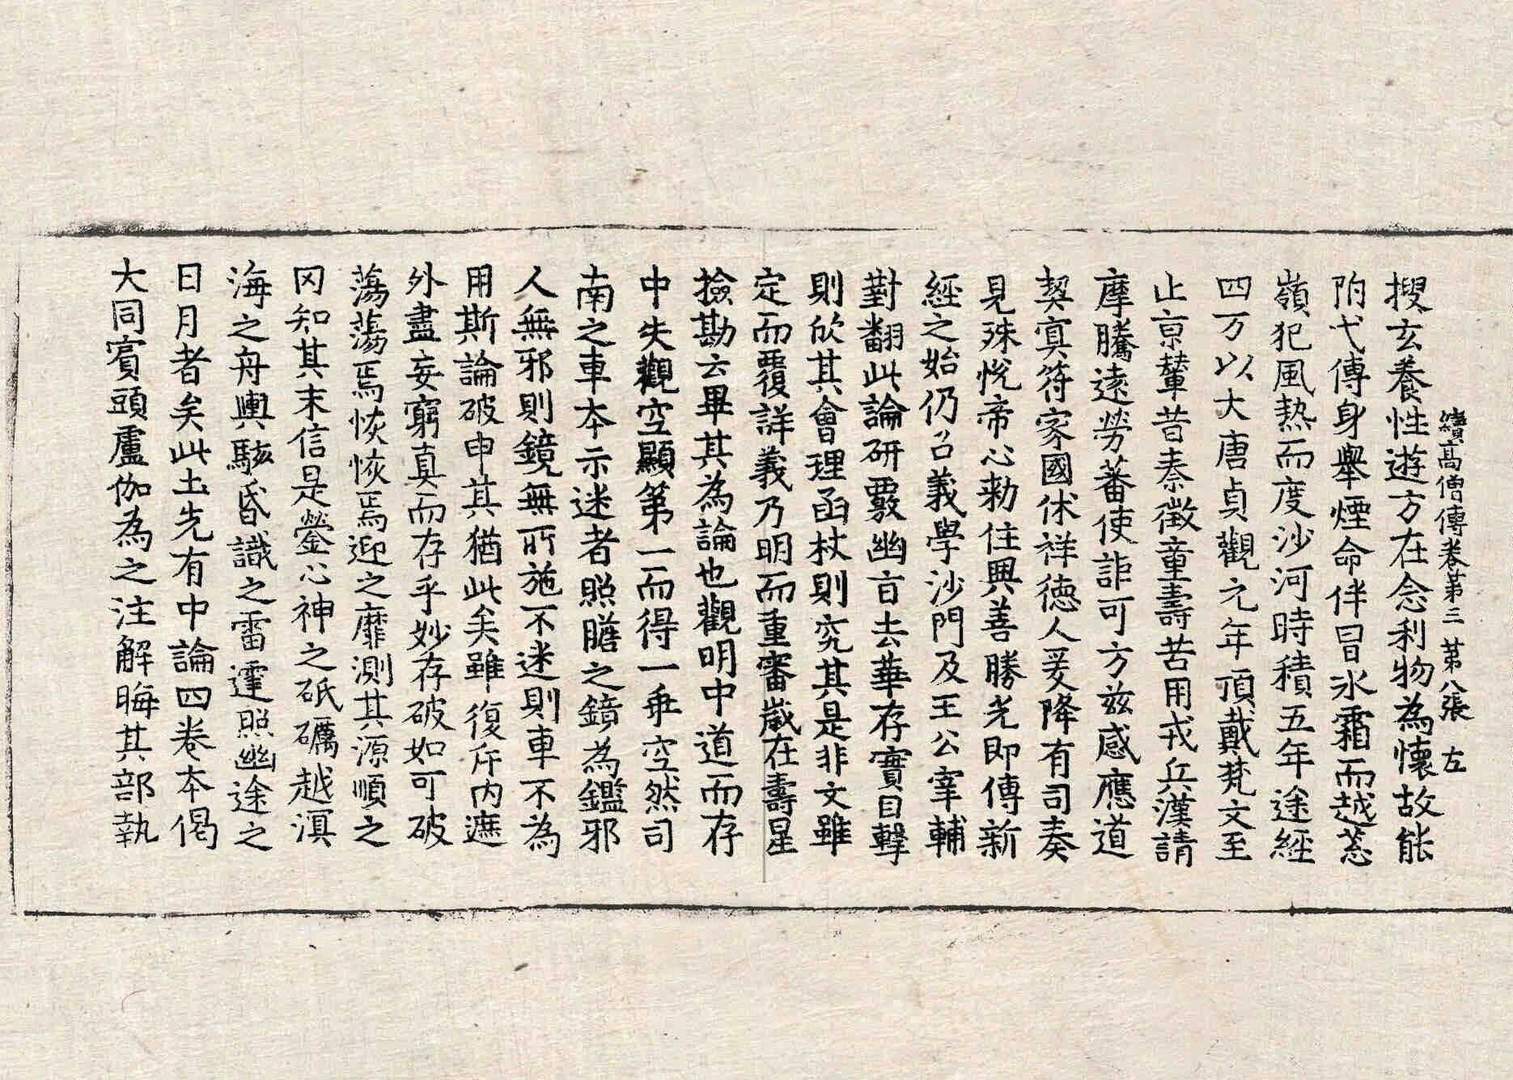 續高僧傳卷第三 第八張 左
搜玄養性遊方在念利物為懷故能
附弋傳身舉煙命伴冒氷霜而越葱
嶺犯風熱而度沙河時積五年途經
四万以大唐貞觀元年頂戴梵文至
止京輦昔秦徵童壽苦用戎兵漢請
摩騰遠勞蕃使詎可方兹感應道
契冥符家國休祥德人爰降有司奏
見殊悅帝心勅住興善勝光即傳新
經之始仍召義學沙門及王公宰輔
對翻此論研覈幽旨去華存實目擊
則欣其會理函杖則究其是非文雖
定而覆詳義乃明而重審歲在壽星
撿勘云畢其為論也觀明中道而存
中失觀空顯第一而得一乖空然司
南之車本示迷者照膽之鏡為鑑邪
人無邪則鏡無所施不迷則車不為
用斯論破申其猶此矣雖復斥內遮
外盡妄窮真而存乎妙存破如可破
蕩蕩焉恢恢焉迎之靡測其源順之
罔知其末信是鎣心神之砥礪越溟
海之舟輿駭昏識之雷霆照幽途之
日月者矣此土先有中論四卷本偈
大同賓頭盧伽為之注解晦其部執